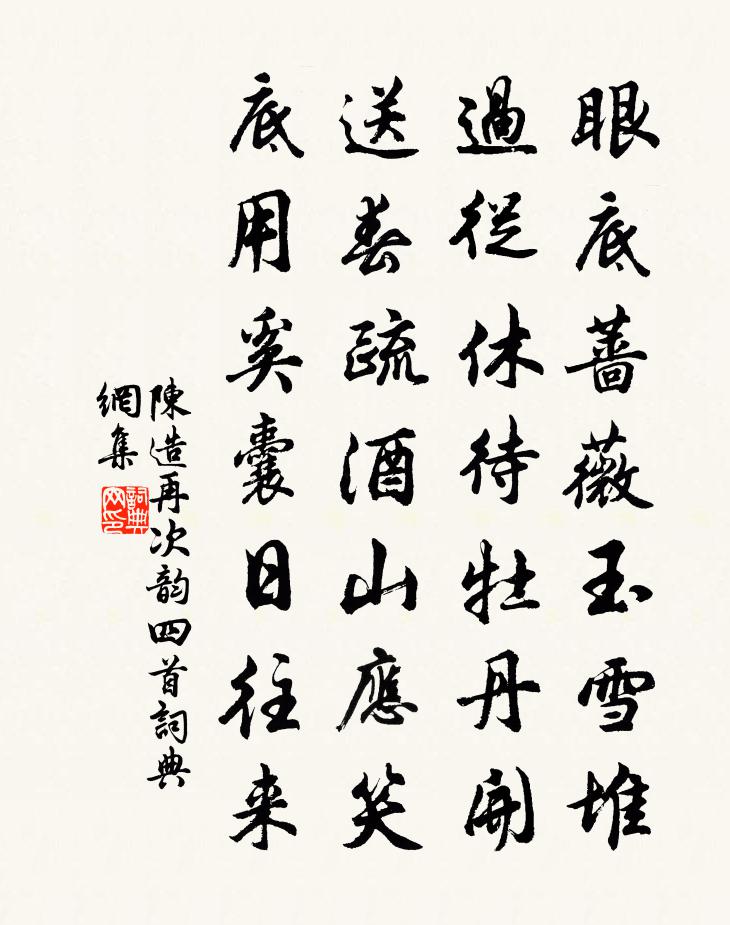 眼底薔薇玉雪堆
過從休待牡丹開
送春疏酒山應笑
底用奚囊日往来
陳造再次韵四首詞典
網集
詞典
网印